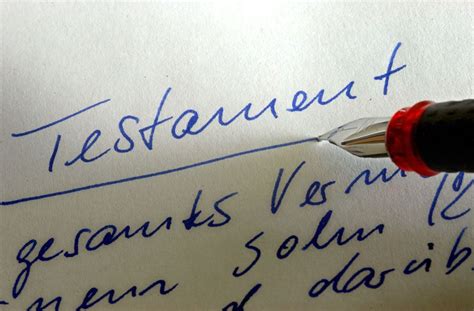 Testament
gesamtes Verm
nem Sohn
d darüb